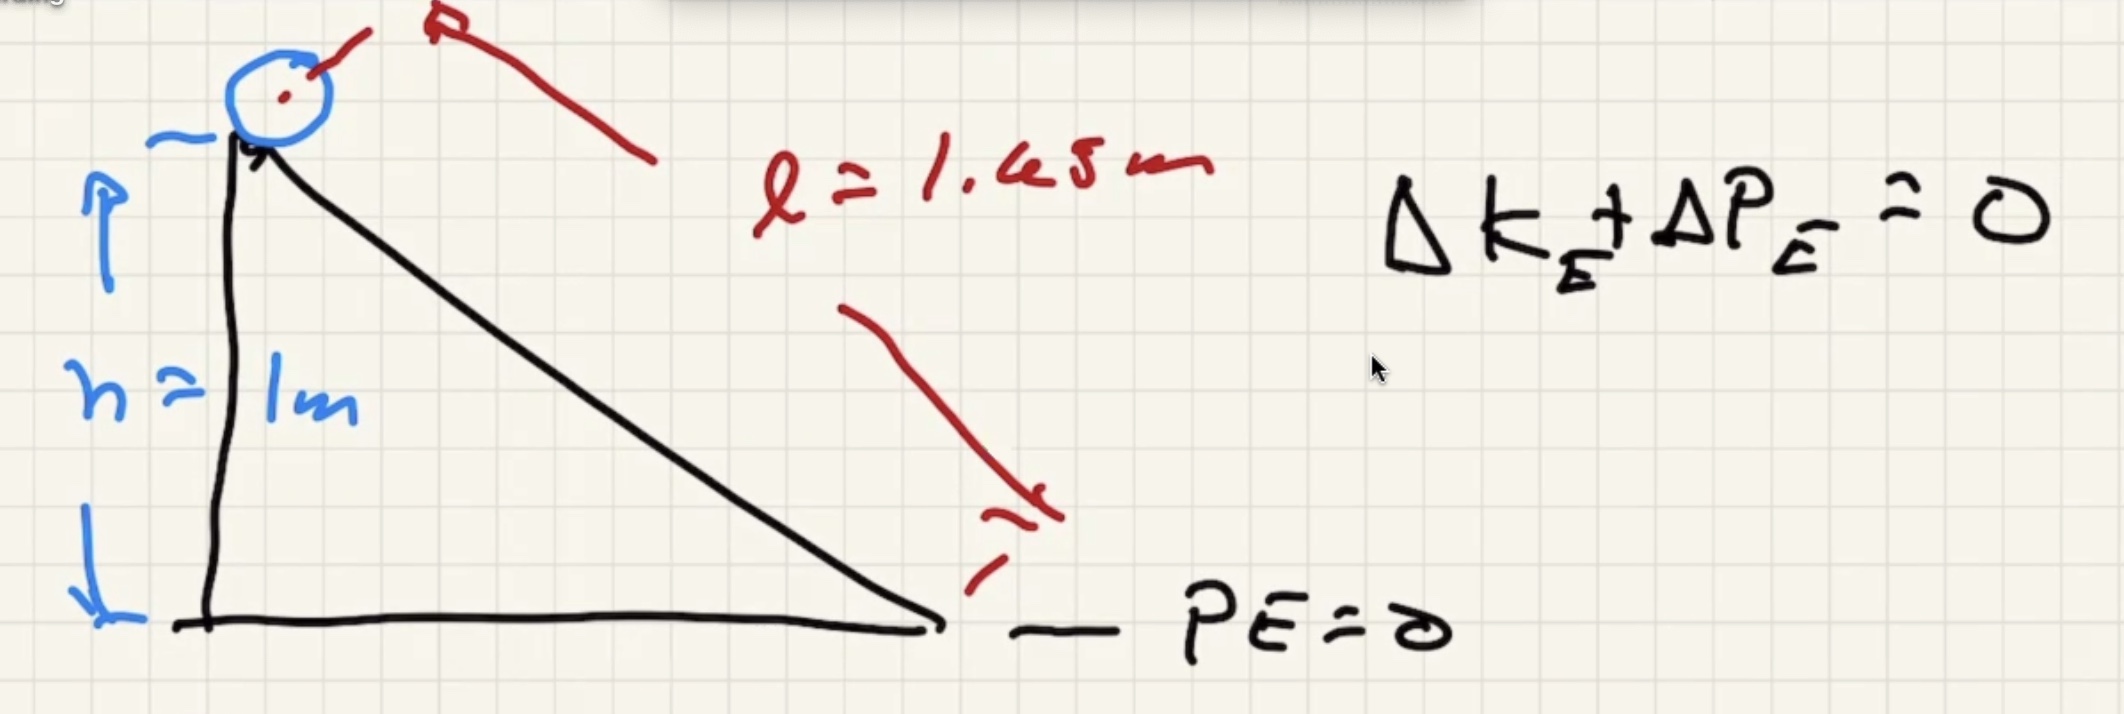 l = 1.45m
ΔK_E + ΔP_E = 0
h = 1m
PE = 0